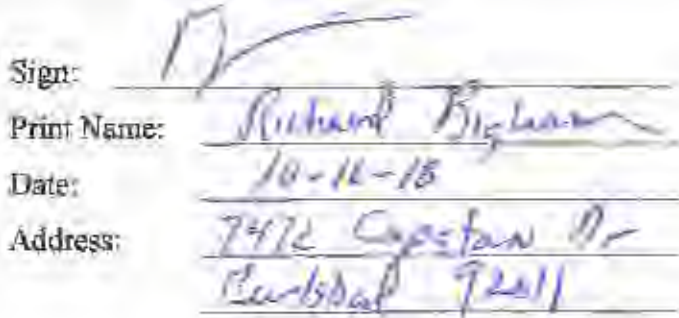 Sign:
Print Name: Richard Bigham
Date: 10-16-15
Address: 7472 Capstan Dr
Carlsbad 92011